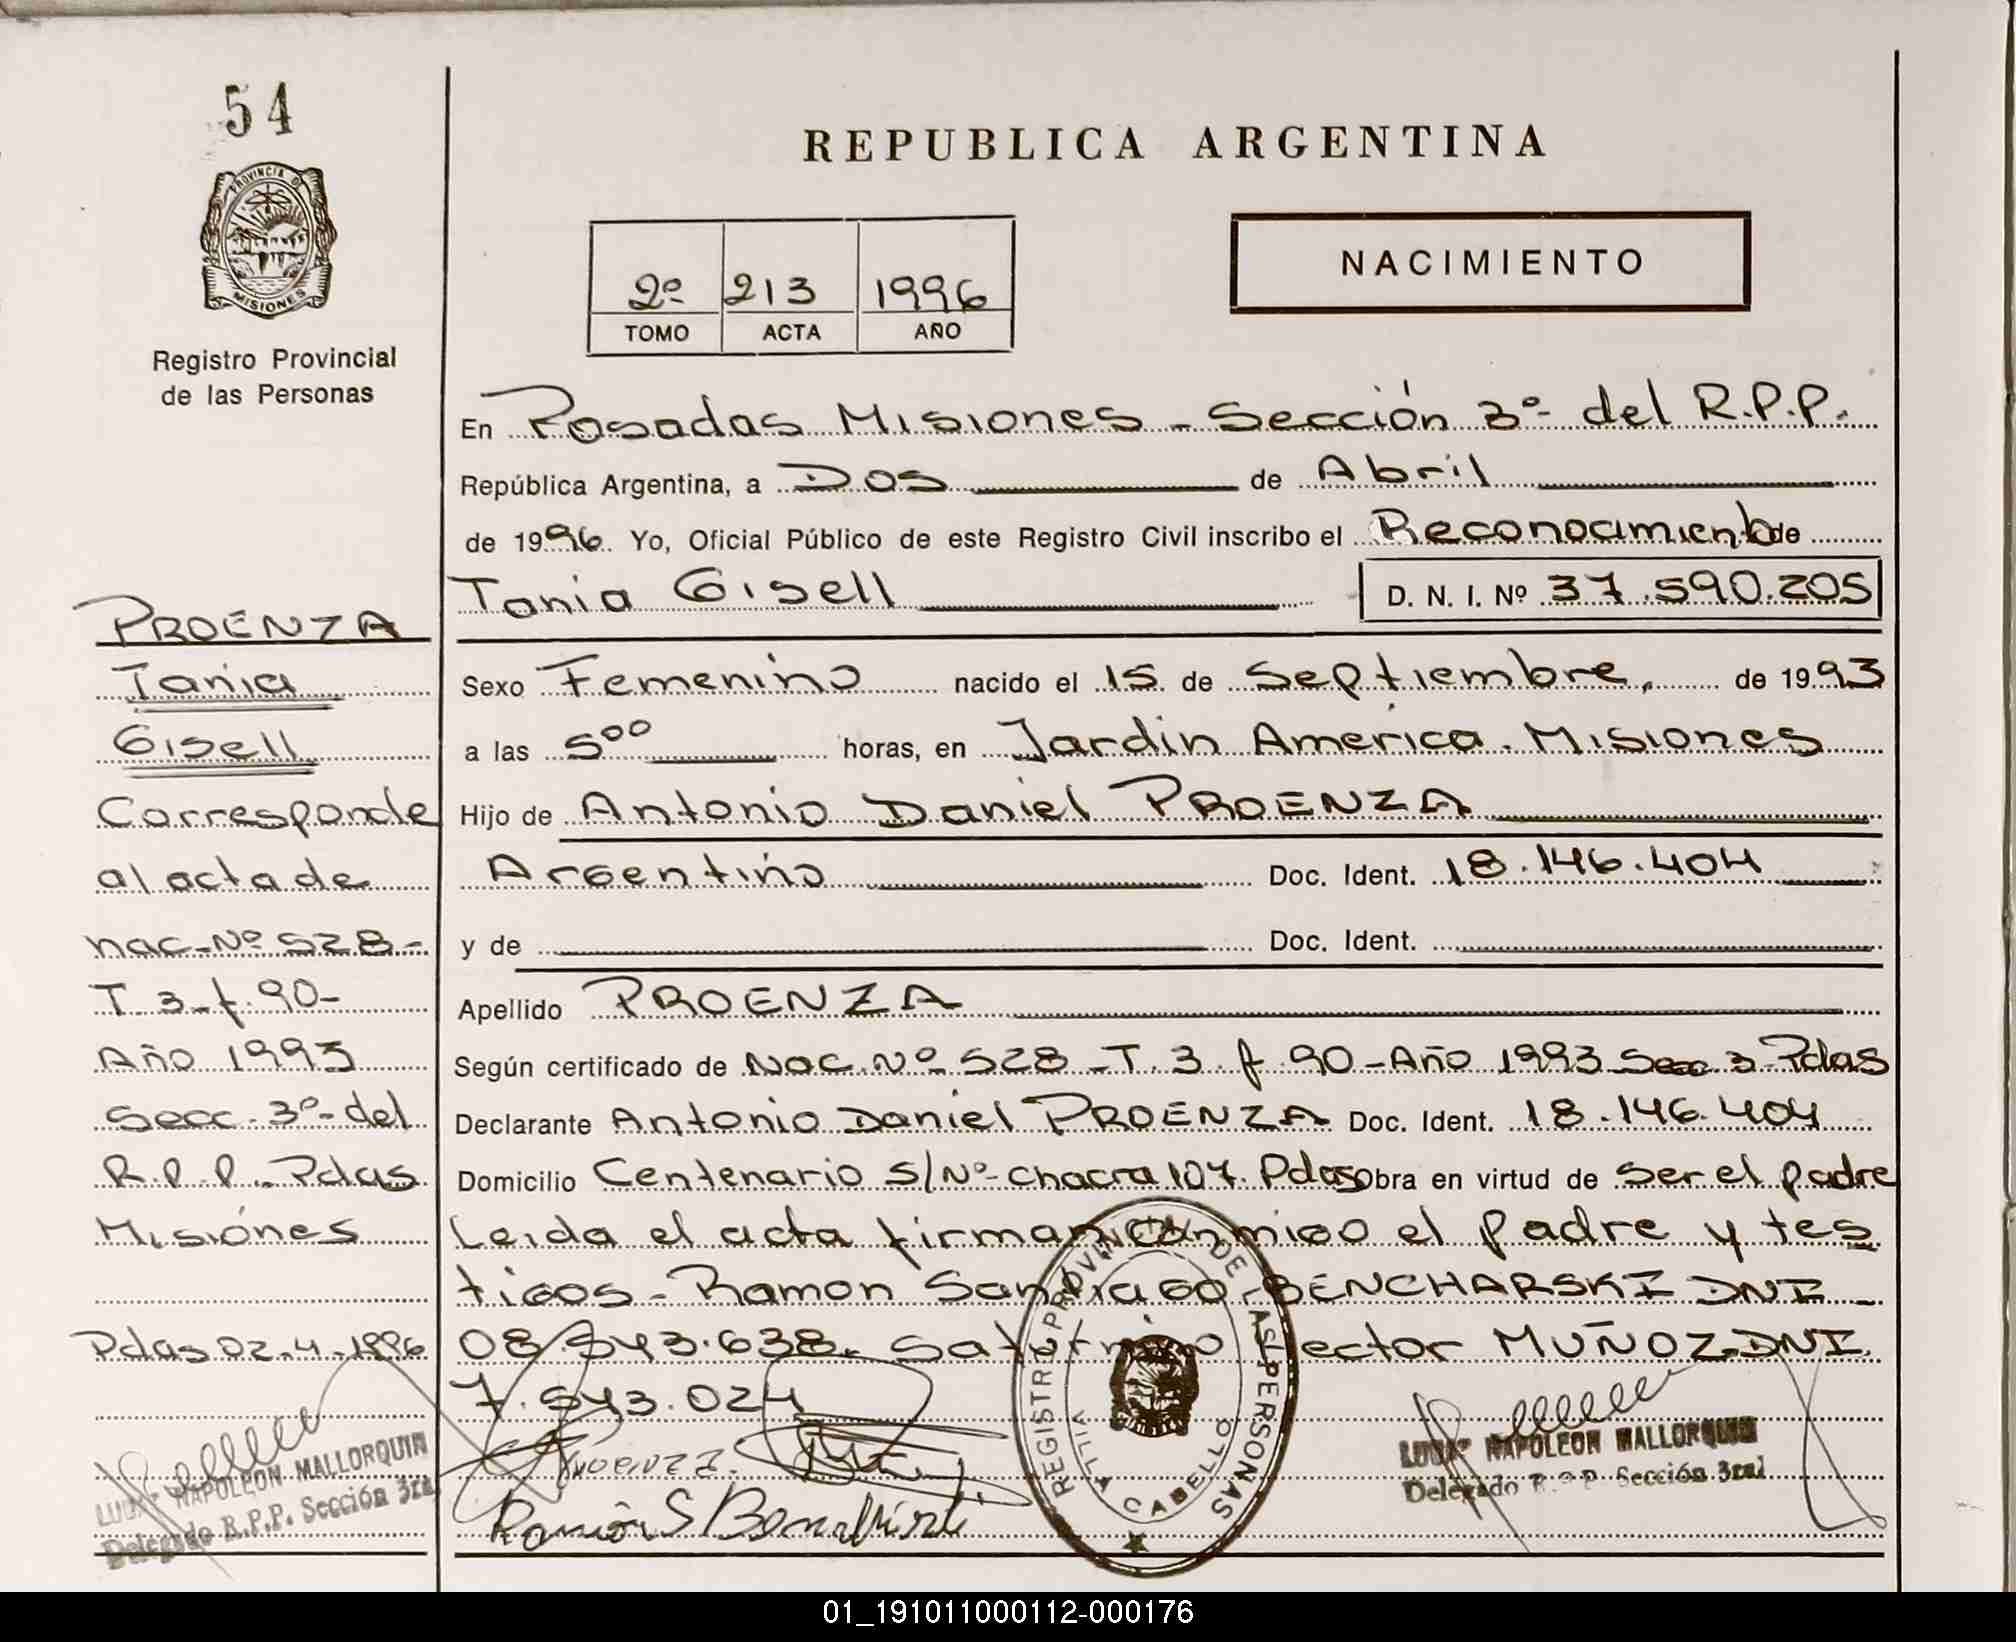 54
PROVINCIA DE
MISIONES
Registro Provincial
de las Personas
PROENZA
Tania
Gisell
Corresponde
al acta de
nac. Nº 528-
T. 3- f. 90-
Año 1993
Secc. 3º- del
R.P.P. Pdas
Misiones
Pdas 02-4-1996
NAPOLEON MALLORQUIN
Delegado R.P.P. Sección 3ra
REPUBLICA ARGENTINA
2º 213 1996
TOMO ACTA AÑO
NACIMIENTO
En Posadas Misiones - Sección 3º- del R.P.P.
República Argentina, a Dos de Abril
de 1996. Yo, Oficial Público de este Registro Civil inscribo el Reconocimiento de
Tania Gisell D. N. I. Nº 37.590.205
Sexo Femenino nacido el 15 de Septiembre, de 1993
a las 5⁰⁰ horas, en Jardin América. Misiones
Hijo de Antonio Daniel PROENZA
Argentino Doc. Ident. 18.146.404
y de Doc. Ident.
Apellido PROENZA
Según certificado de Nac. Nº 528 - T. 3. f. 90 - Año 1993 Secc 3- Pdas
Declarante Antonio Daniel PROENZA Doc. Ident. 18.146.404
Domicilio Centenario S/Nº- chacra 107. Pdas obra en virtud de ser el padre
Leida el acta firman conmigo el padre y tes
tigos - Ramon Santiago BENCHARSKI DNI
08.543.638. Saturnino Hector MUÑOZ DNI
7.543.024
Proenza
Ramón S
REGISTRO PROVINCIAL DE LAS PERSONAS
VILLA CABELLO
NAPOLEON MALLORQUIN
Delegado R.P.P. Sección 3ra
01_191011000112-000176